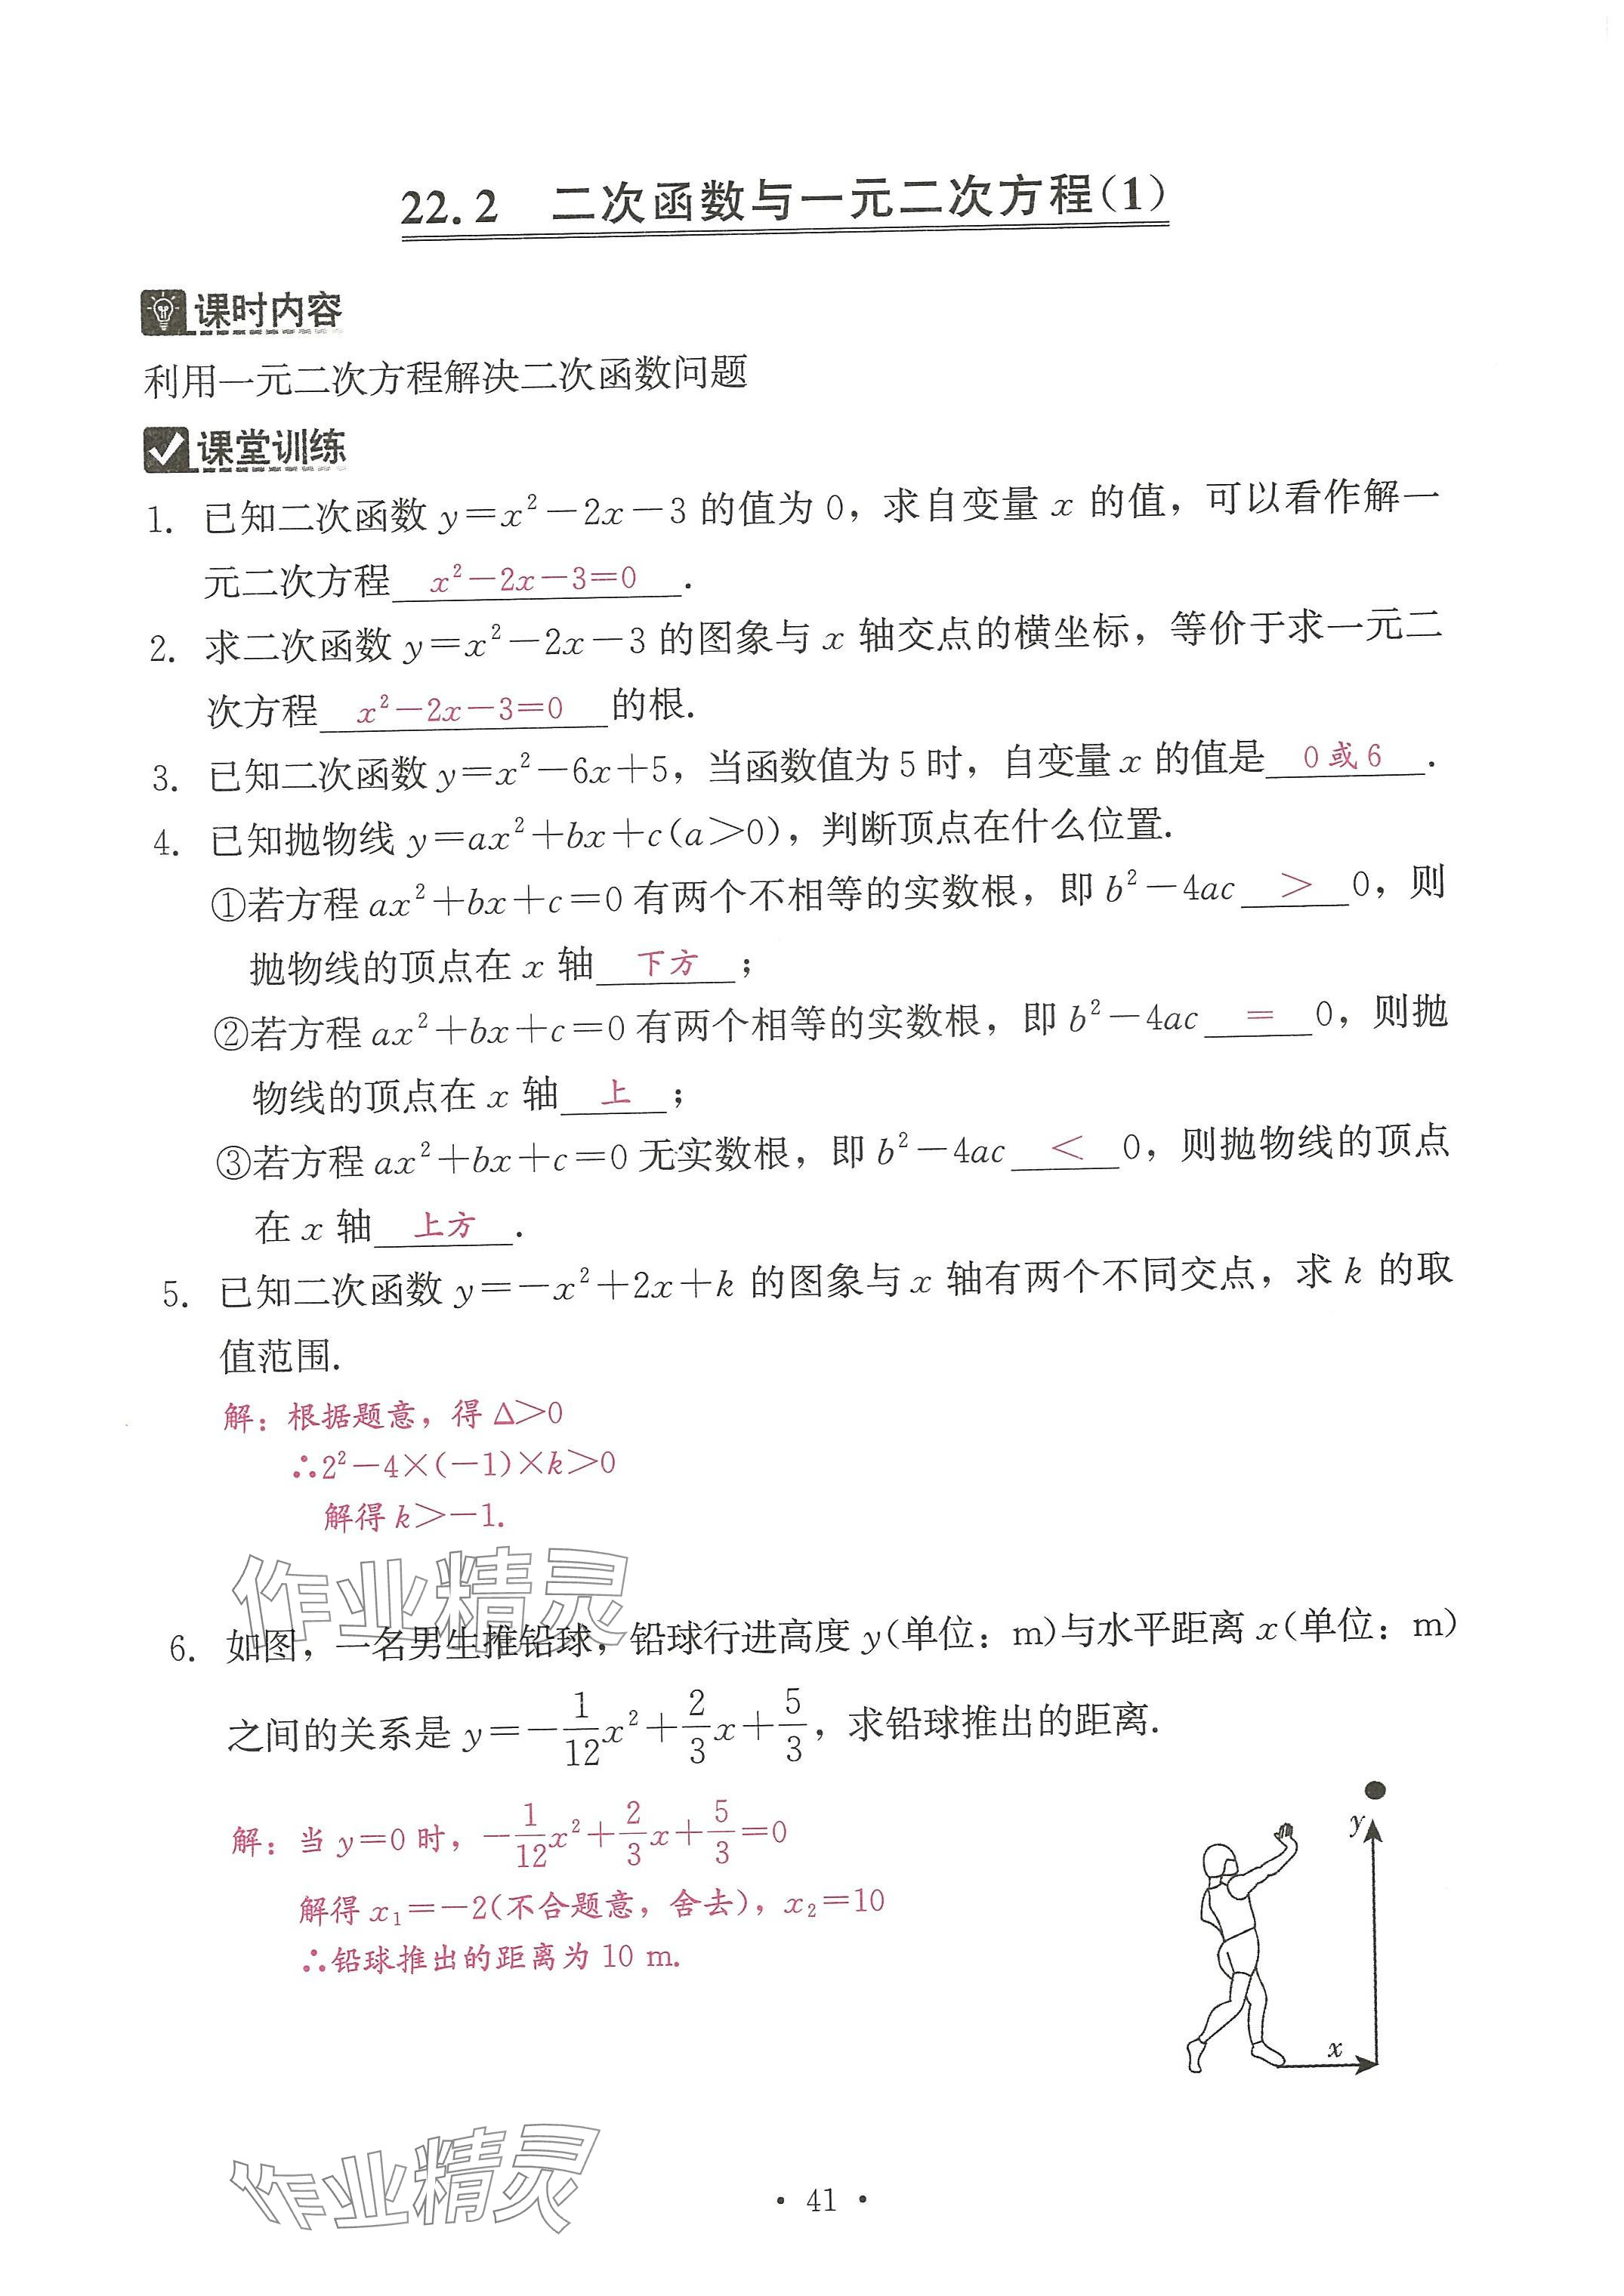 22.2 二次函数与一元二次方程(1)
课时内容
利用一元二次方程解决二次函数问题
课堂训练
1. 已知二次函数 y=x²-2x-3 的值为 0，求自变量 x 的值，可以看作解一
元二次方程 x²-2x-3=0 .
2. 求二次函数 y=x²-2x-3 的图象与 x 轴交点的横坐标，等价于求一元二
次方程 x²-2x-3=0 的根.
3. 已知二次函数 y=x²-6x+5，当函数值为 5 时，自变量 x 的值是 0 或 6 .
4. 已知抛物线 y=ax²+bx+c(a>0)，判断顶点在什么位置.
①若方程 ax²+bx+c=0 有两个不相等的实数根，即 b²-4ac > 0，则
抛物线的顶点在 x 轴 下方 ；
②若方程 ax²+bx+c=0 有两个相等的实数根，即 b²-4ac = 0，则抛
物线的顶点在 x 轴 上 ；
③若方程 ax²+bx+c=0 无实数根，即 b²-4ac < 0，则抛物线的顶点
在 x 轴 上方 .
5. 已知二次函数 y=-x²+2x+k 的图象与 x 轴有两个不同交点，求 k 的取
值范围.
解：根据题意，得 Δ>0
∴2²-4×(-1)×k>0
解得 k>-1.
作业精灵
6. 如图，一名男生推铅球，铅球行进高度 y(单位：m)与水平距离 x(单位：m)
之间的关系是 y=-1/12x²+2/3x+5/3，求铅球推出的距离.
解：当 y=0 时，-1/12x²+2/3x+5/3=0
解得 x₁=-2(不合题意，舍去)，x₂=10
∴铅球推出的距离为 10 m.
y
x
作业精灵
· 41 ·